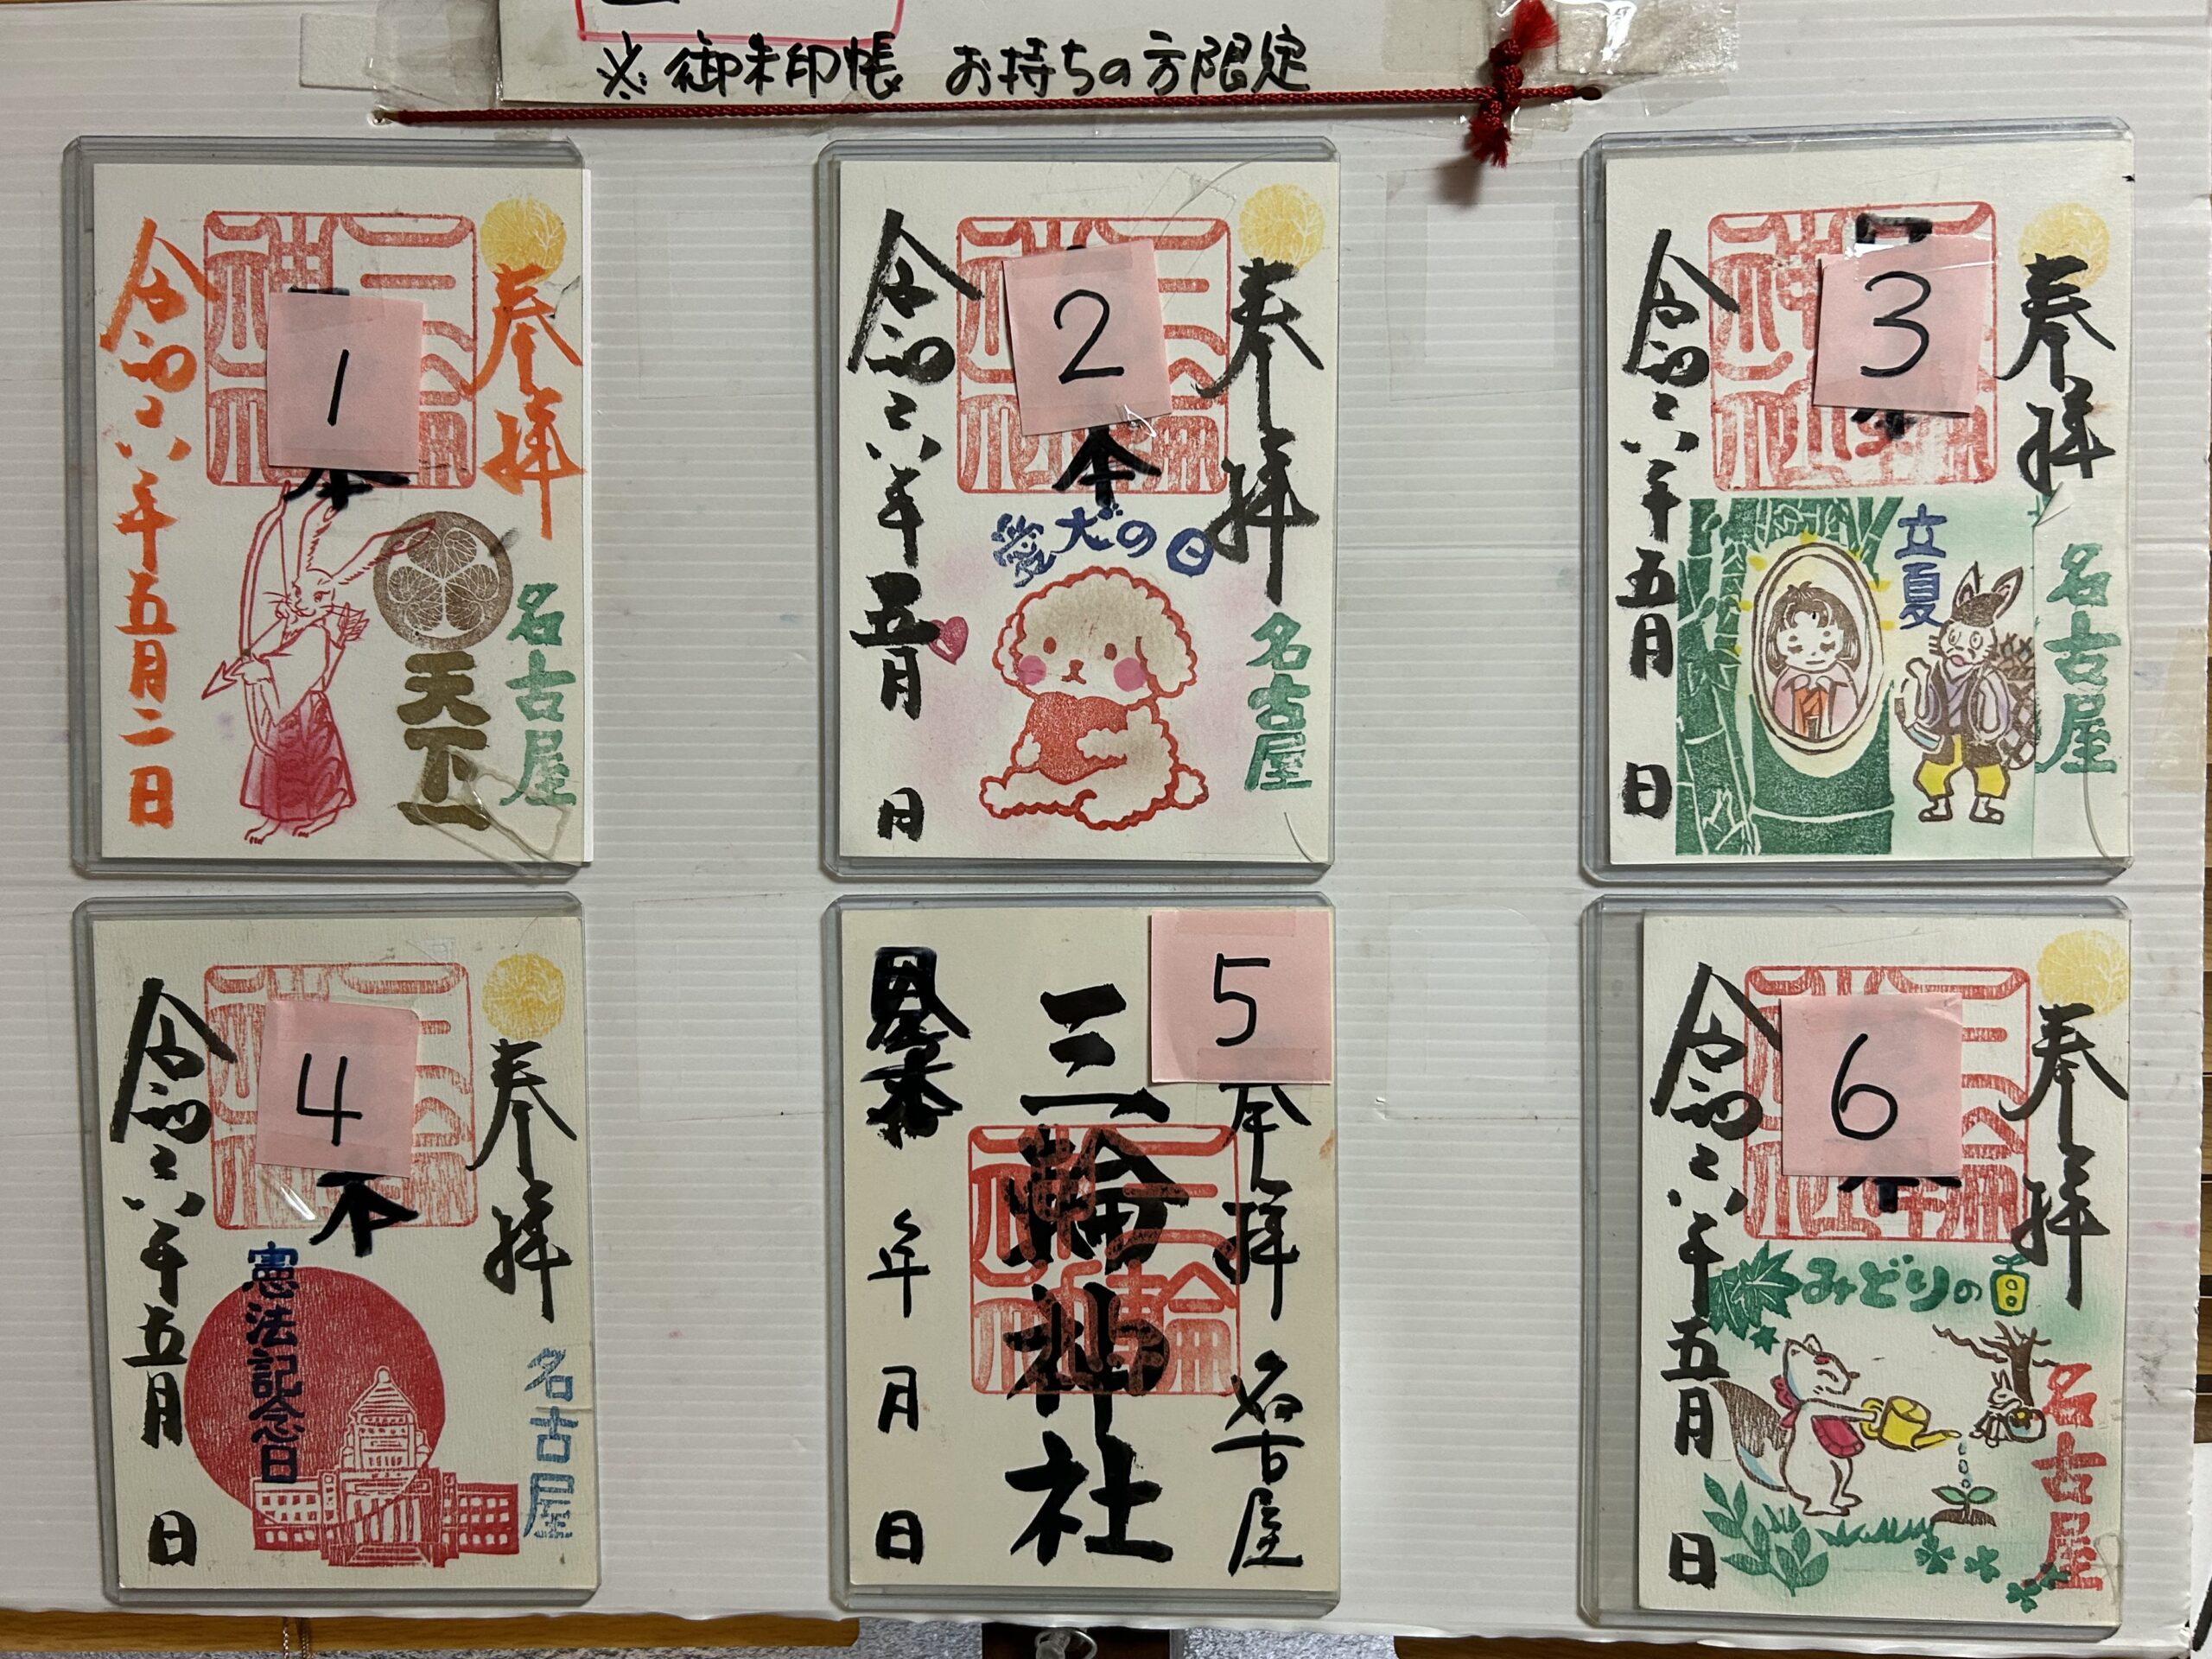 ※御朱印帳 お持ちの方限定
1
奉拝
三輪神社
天下一
名古屋
令和六年五月二日
2
奉拝
三輪神社
本
愛犬の日
名古屋
令和六年五月 日
3
奉拝
三輪神社
立夏
名古屋
令和六年五月 日
4
奉拝
三輪神社
憲法記念日
名古屋
令和六年五月 日
5
奉拝
名古屋
三輪神社
三輪神社
見本
年 月 日
6
奉拝
三輪神社
みどりの日
名古屋
令和六年五月 日